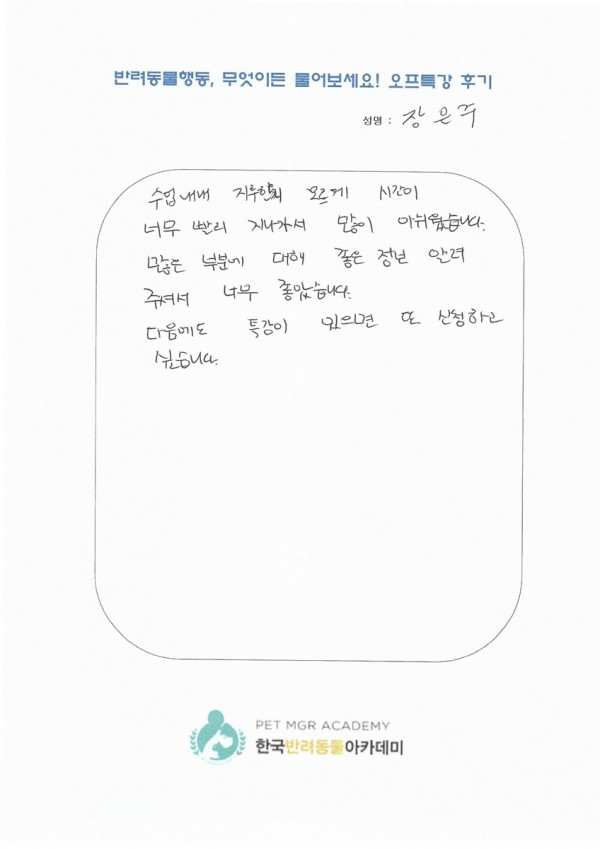 반려동물행동, 무엇이든 물어보세요! 오프특강 후기
성명 : 장은주
수업내내 지루한지 모르게 시간이
너무 빨리 지나가서 많이 아쉬웠습니다.
많은 부분에 대해 좋은 정보 알려
주셔서 너무 좋았습니다.
다음에도 특강이 있으면 또 신청하고
싶습니다.
PET MGR ACADEMY
한국반려동물아카데미